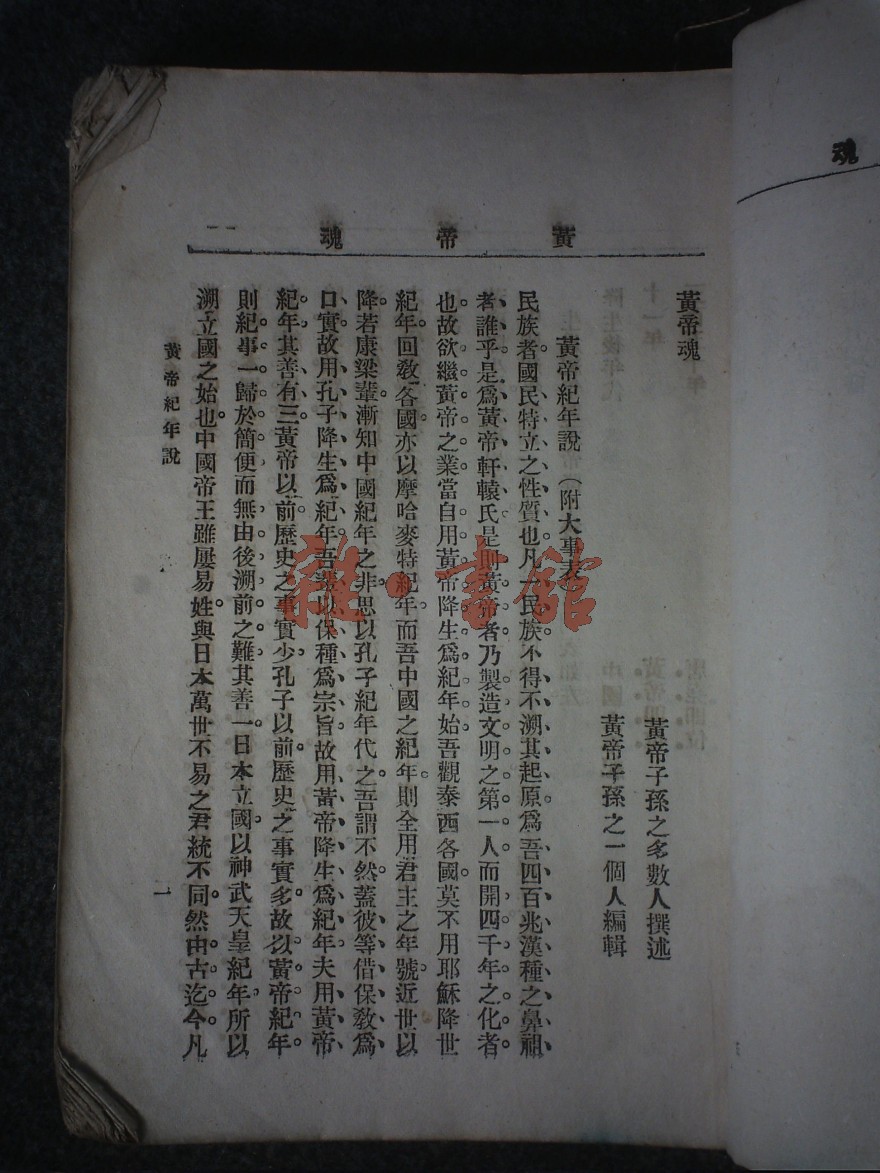 魂
黃帝魂
黃帝魂
黃帝子孫之多數人撰述
黃帝子孫之一個人編輯
黃帝紀年說 (附大事表)
民族者。國民特立之性質也。凡一民族不得不溯其起原。爲吾四百兆漢種之鼻祖
者誰乎。是爲黃帝軒轅氏。是則黃帝者乃製造文明之第一人。而開四千年之化者
也。故欲繼黃帝之業。當自用黃帝降生爲紀年始。吾觀泰西各國莫不用耶穌降世
紀年。回敎各國亦以摩哈麥特紀年。而吾中國之紀年。則全用君主之年號。近世以
降。若康梁輩漸知中國紀年之非。思以孔子紀年代之。吾謂不然。蓋彼等借保敎爲
口實。故用孔子降生爲紀年。吾輩以保種爲宗旨。故用黃帝降生爲紀年。夫用黃帝
紀年。其善有三。黃帝以前歷史之事實少。孔子以前歷史之事實多。故以黃帝紀年。
則紀事一歸於簡便。而無由後溯前之難。其善一。日本立國以神武天皇紀年。所以
溯立國之始也。中國帝王雖屢易姓。與日本萬世不易之君統不同。然由古迄今。凡
黃帝紀年說
一
雜·書館